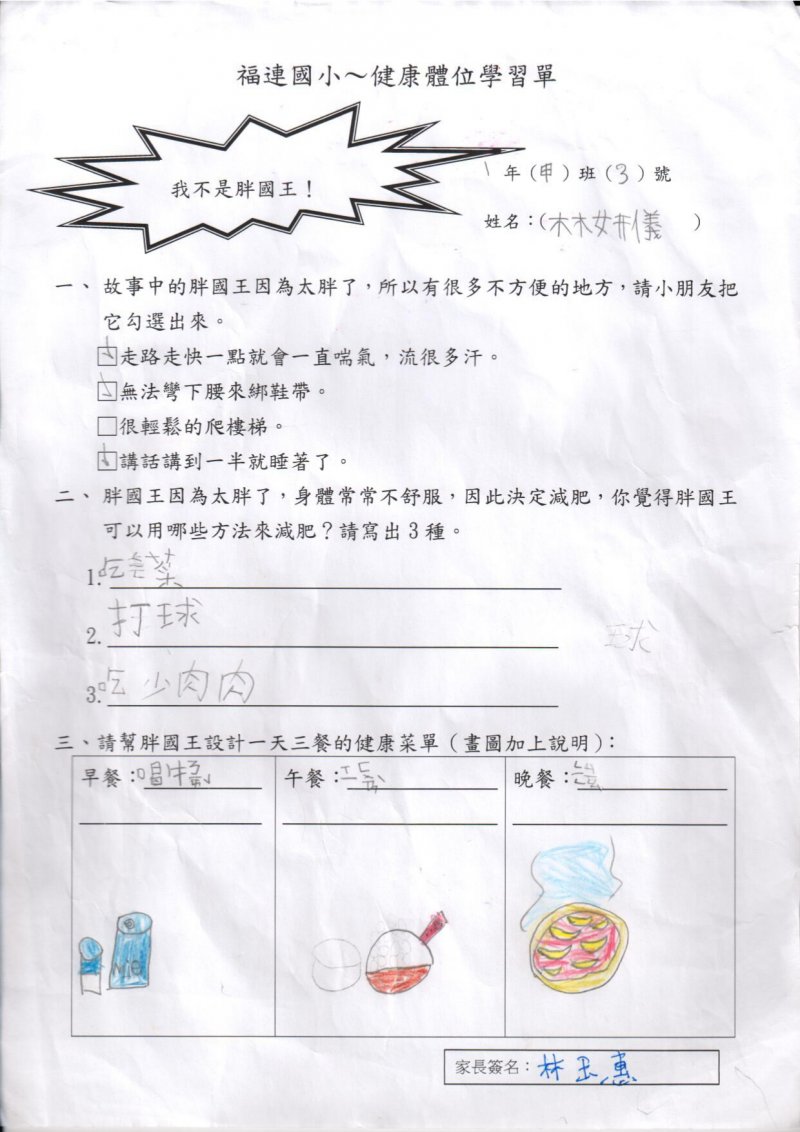 福連國小～健康體位學習單
我不是胖國王！
1年（甲）班（3）號
姓名：（林妍儀）
一、故事中的胖國王因為太胖了，所以有很多不方便的地方，請小朋友把
它勾選出來。
☑走路走快一點就會一直喘氣，流很多汗。
☑無法彎下腰來綁鞋帶。
□很輕鬆的爬樓梯。
☑講話講到一半就睡著了。
二、胖國王因為太胖了，身體常常不舒服，因此決定減肥，你覺得胖國王
可以用哪些方法來減肥？請寫出3種。
1.吃菜
2.打球
球
3.吃少肉肉
三、請幫胖國王設計一天三餐的健康菜單（畫圖加上說明）：
早餐： 午餐： 晚餐：
家長簽名：林玉惠